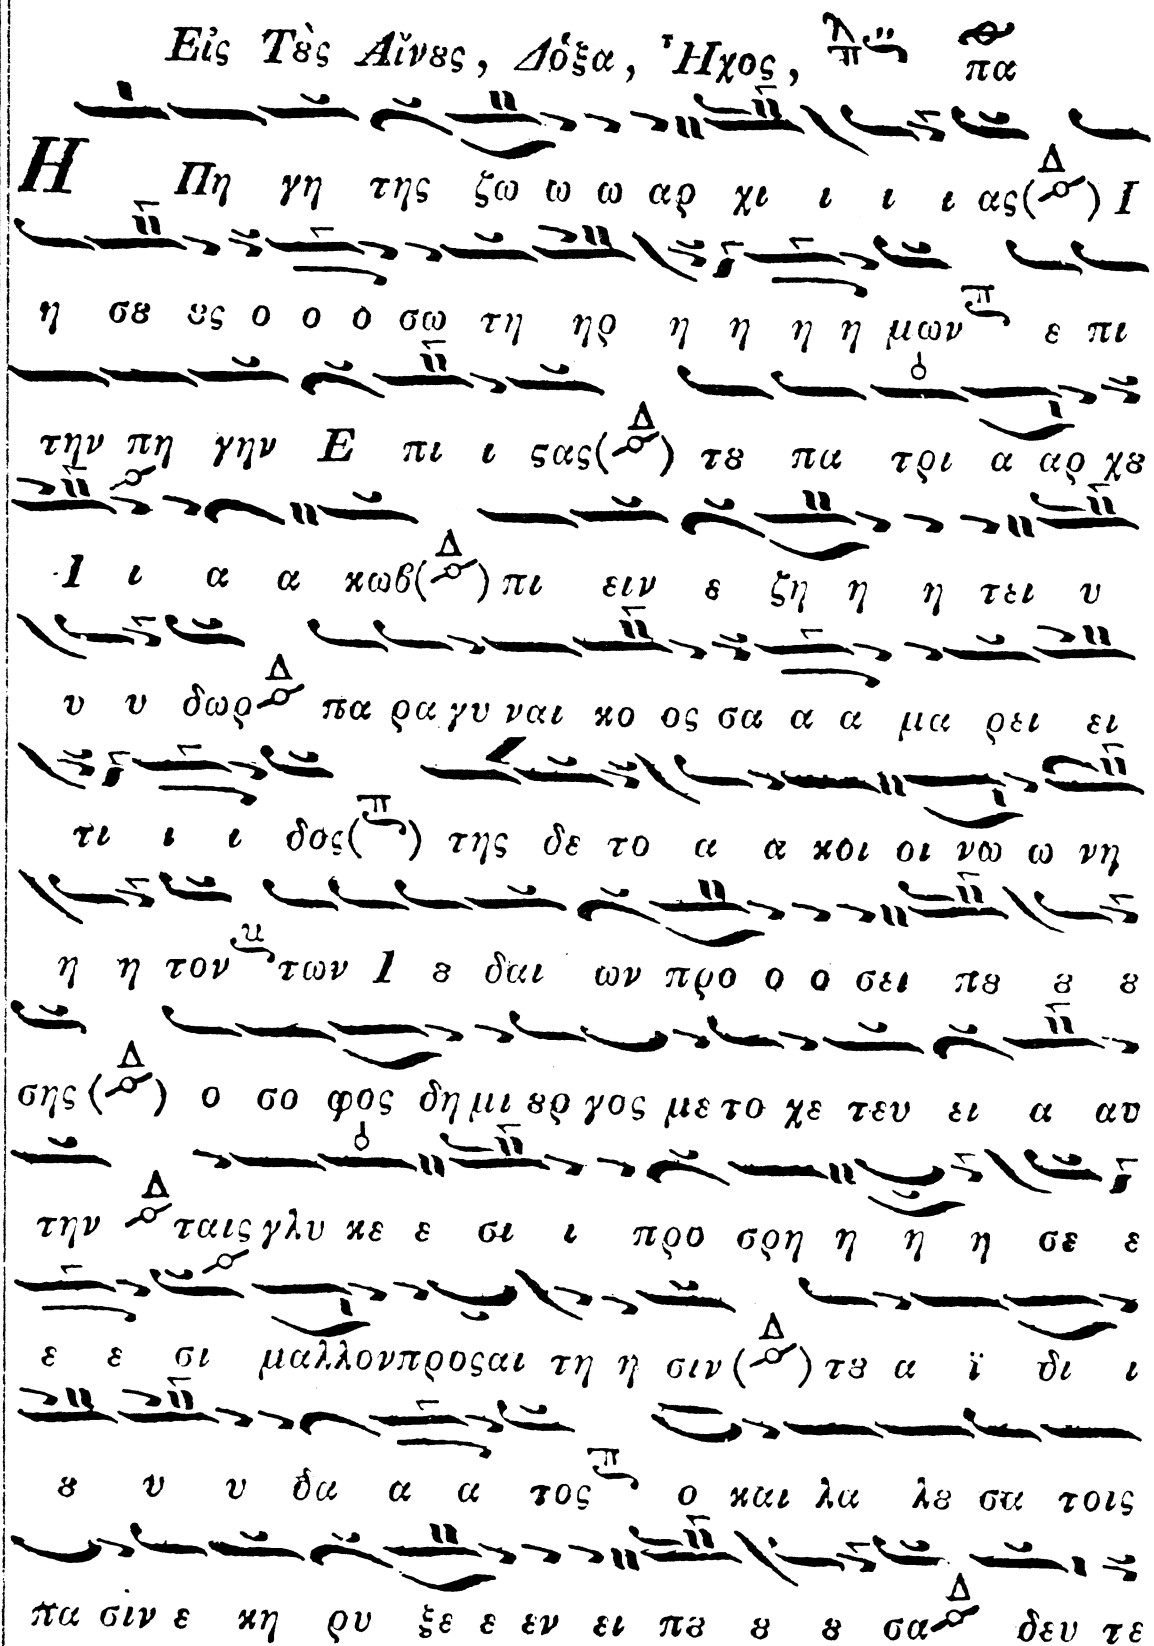 Εἰς Τȣ̀ς Αἴνȣς, Δόξα, Ἦχος, πα
Η Πη γη της ζω ω ω αρ χι ι ι ι ας(Δ) Ι
η σȣ ȣς ο ο ο σω τη ηρ η η η η μων π ε πι
την πη γην Ε πι ι ϛας(Δ) τȣ πα τρι α αρ χȣ
Ι ι α α κωβ(Δ) πι ειν ε ζη η η τει υ
υ υ δωρ Δ πα ρα γυ ναι κο ος σα α α μα ρει ει
τι ι ι δος(π) της δε το α α κοι οι νω ω νη
η η τον υ των Ι ȣ δαι ων προ ο ο σει πȣ ȣ ȣ
σης (Δ) ο σο φος δη μι ȣρ γος με το χε τευ ει α αυ
την Δ ταις γλυ κε ε σι ι προ σρη η η η σε ε
ε ε σι μαλλονπροϛαι τη η σιν(Δ) τȣ α ϊ δι ι
ȣ υ υ δα α α τος π ο και λα λȣ σα τοις
πα σιν ε κη ρυ ξε ε εν ει πȣ ȣ ȣ σα Δ δευ τε